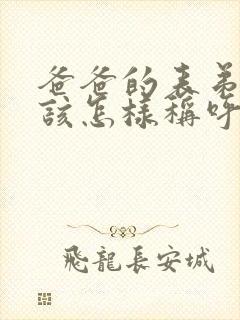 爸爸的表弟
該怎樣稱呼
飛龍長安城